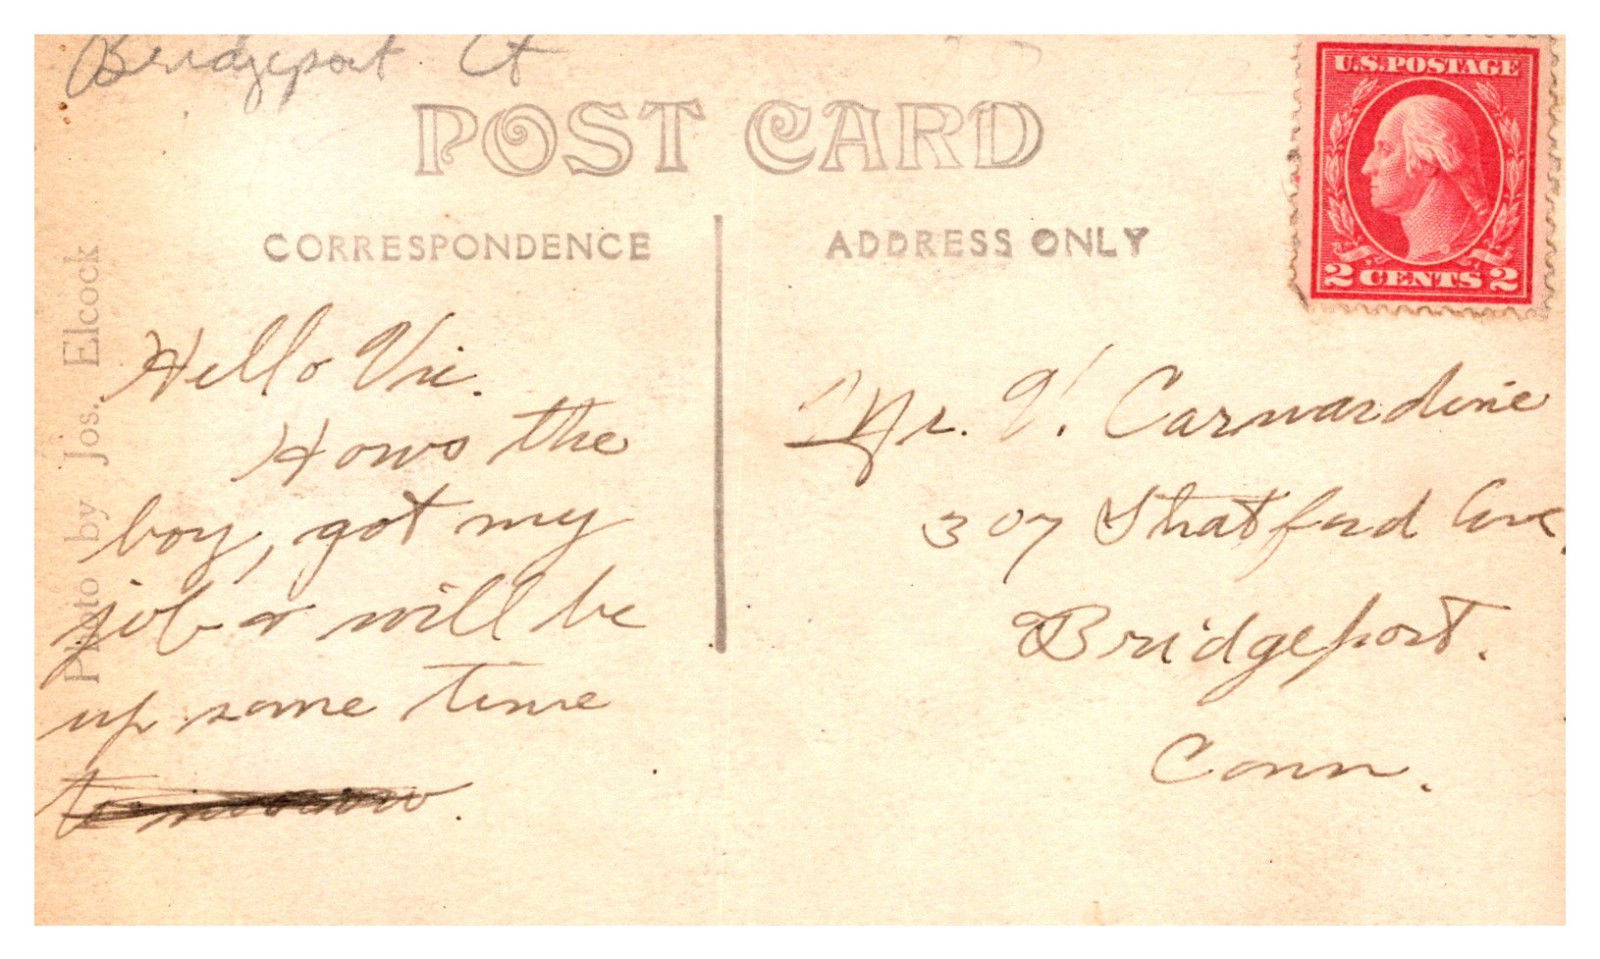 Bridgeport Ct
POST CARD
U.S. POSTAGE
2 CENTS 2
CORRESPONDENCE
ADDRESS ONLY
Photo by Jos. Elcock
Hello Vic.
Hows the
boy, got my
job & will be
up some time
Mr. V. Carwardine
307 Stratford Ave.
Bridgeport.
Conn.